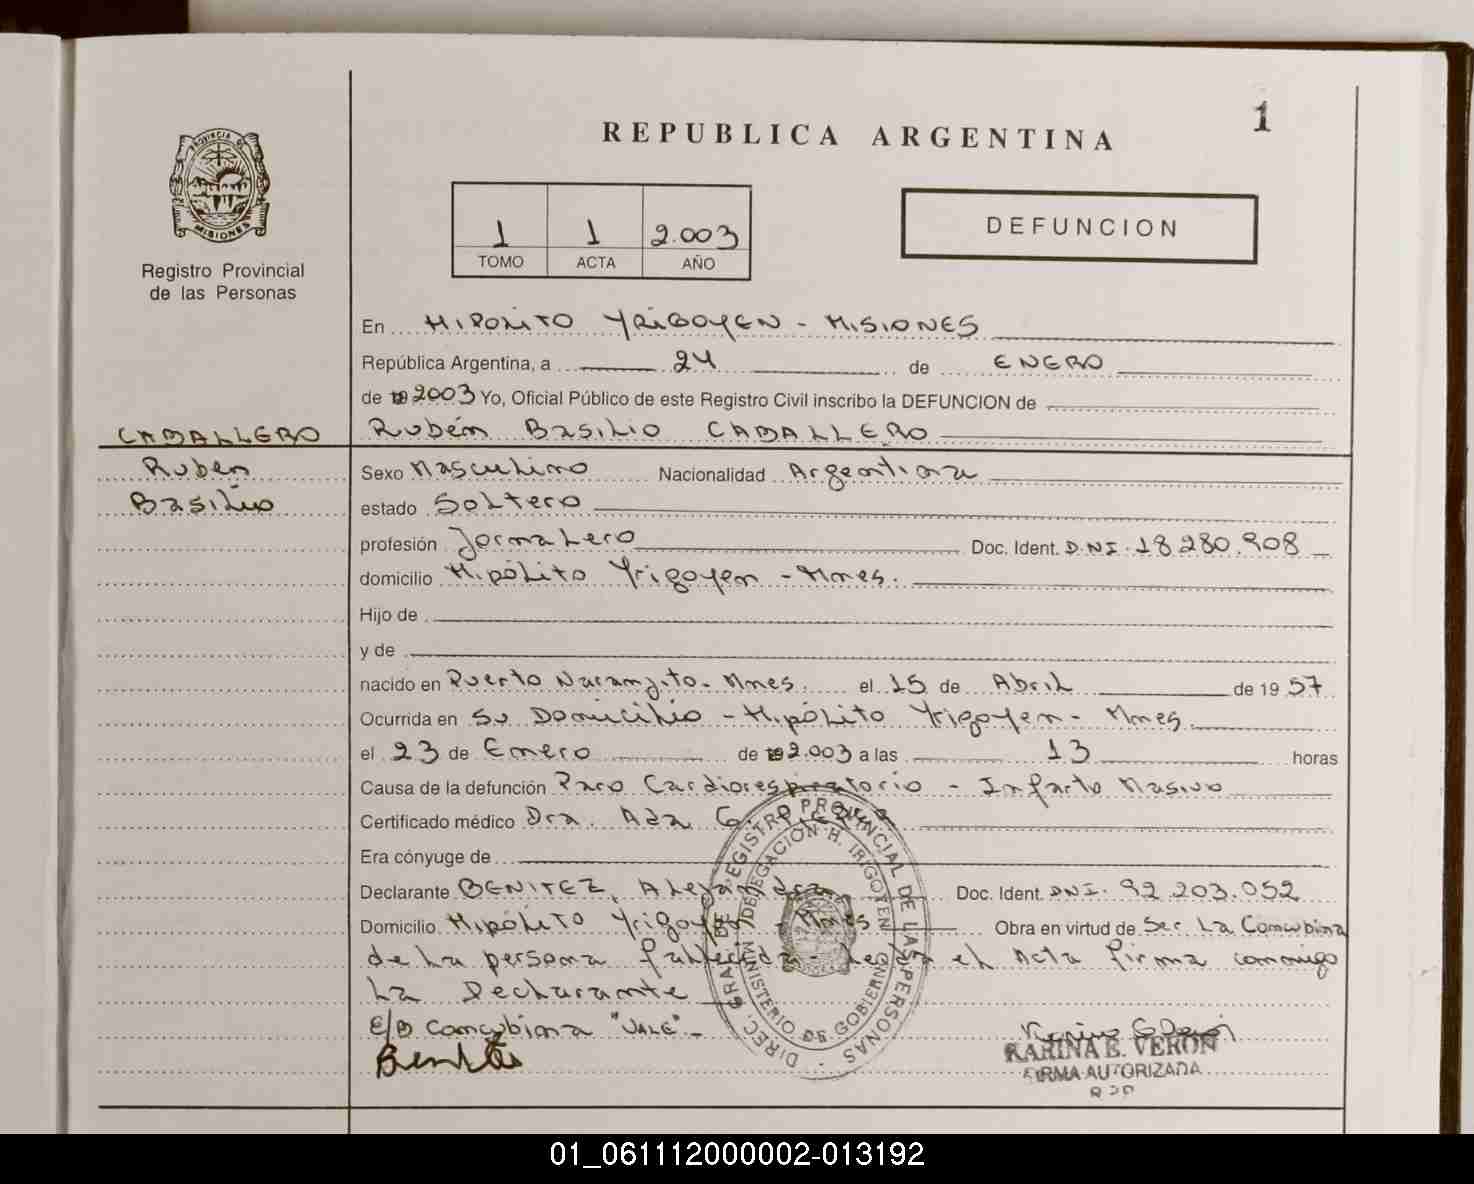 1
REPUBLICA ARGENTINA
PROVINCIA DE
MISIONES
Registro Provincial
de las Personas
1 1 2.003
TOMO ACTA AÑO
DEFUNCION
En HIPOLITO YRIGOYEN - MISIONES
República Argentina, a 24 de ENERO
de 2003 Yo, Oficial Público de este Registro Civil inscribo la DEFUNCION de
CABALLERO
Rubén Basilio CABALLERO
Ruben
Basilio
Sexo Masculino Nacionalidad Argentina
estado Soltero
profesión Jornalero Doc. Ident. D.N.I. 18.280.908
domicilio Hipólito Yrigoyen - Mnes.
Hijo de
y de
nacido en Puerto Naranjito - Mnes. el 15 de Abril de 1957
Ocurrida en Su Domicilio - Hipólito Yrigoyen - Mnes.
el 23 de Enero de 2.003 a las 13 horas
Causa de la defunción Paro Cardiorespiratorio - Infarto Masivo
Certificado médico Dra. Ada G.
Era cónyuge de
Declarante BENITEZ, Alejandra Doc. Ident. DNI. 92.203.052
Domicilio Hipólito Yrigoyen - Mnes Obra en virtud de Ser La Concubina
de La persona fallecida - Leída el Acta firma conmigo
La Declarante
E/B Concubina "VALE"
Benitez
DIREC. GRAL. DE REGISTRO PROVINCIAL DE LAS PERSONAS
MINISTERIO DE GOBIERNO
DELEGACION H. IRIGOYEN
KARINA E. VERON
FIRMA AUTORIZADA
01_061112000002-013192